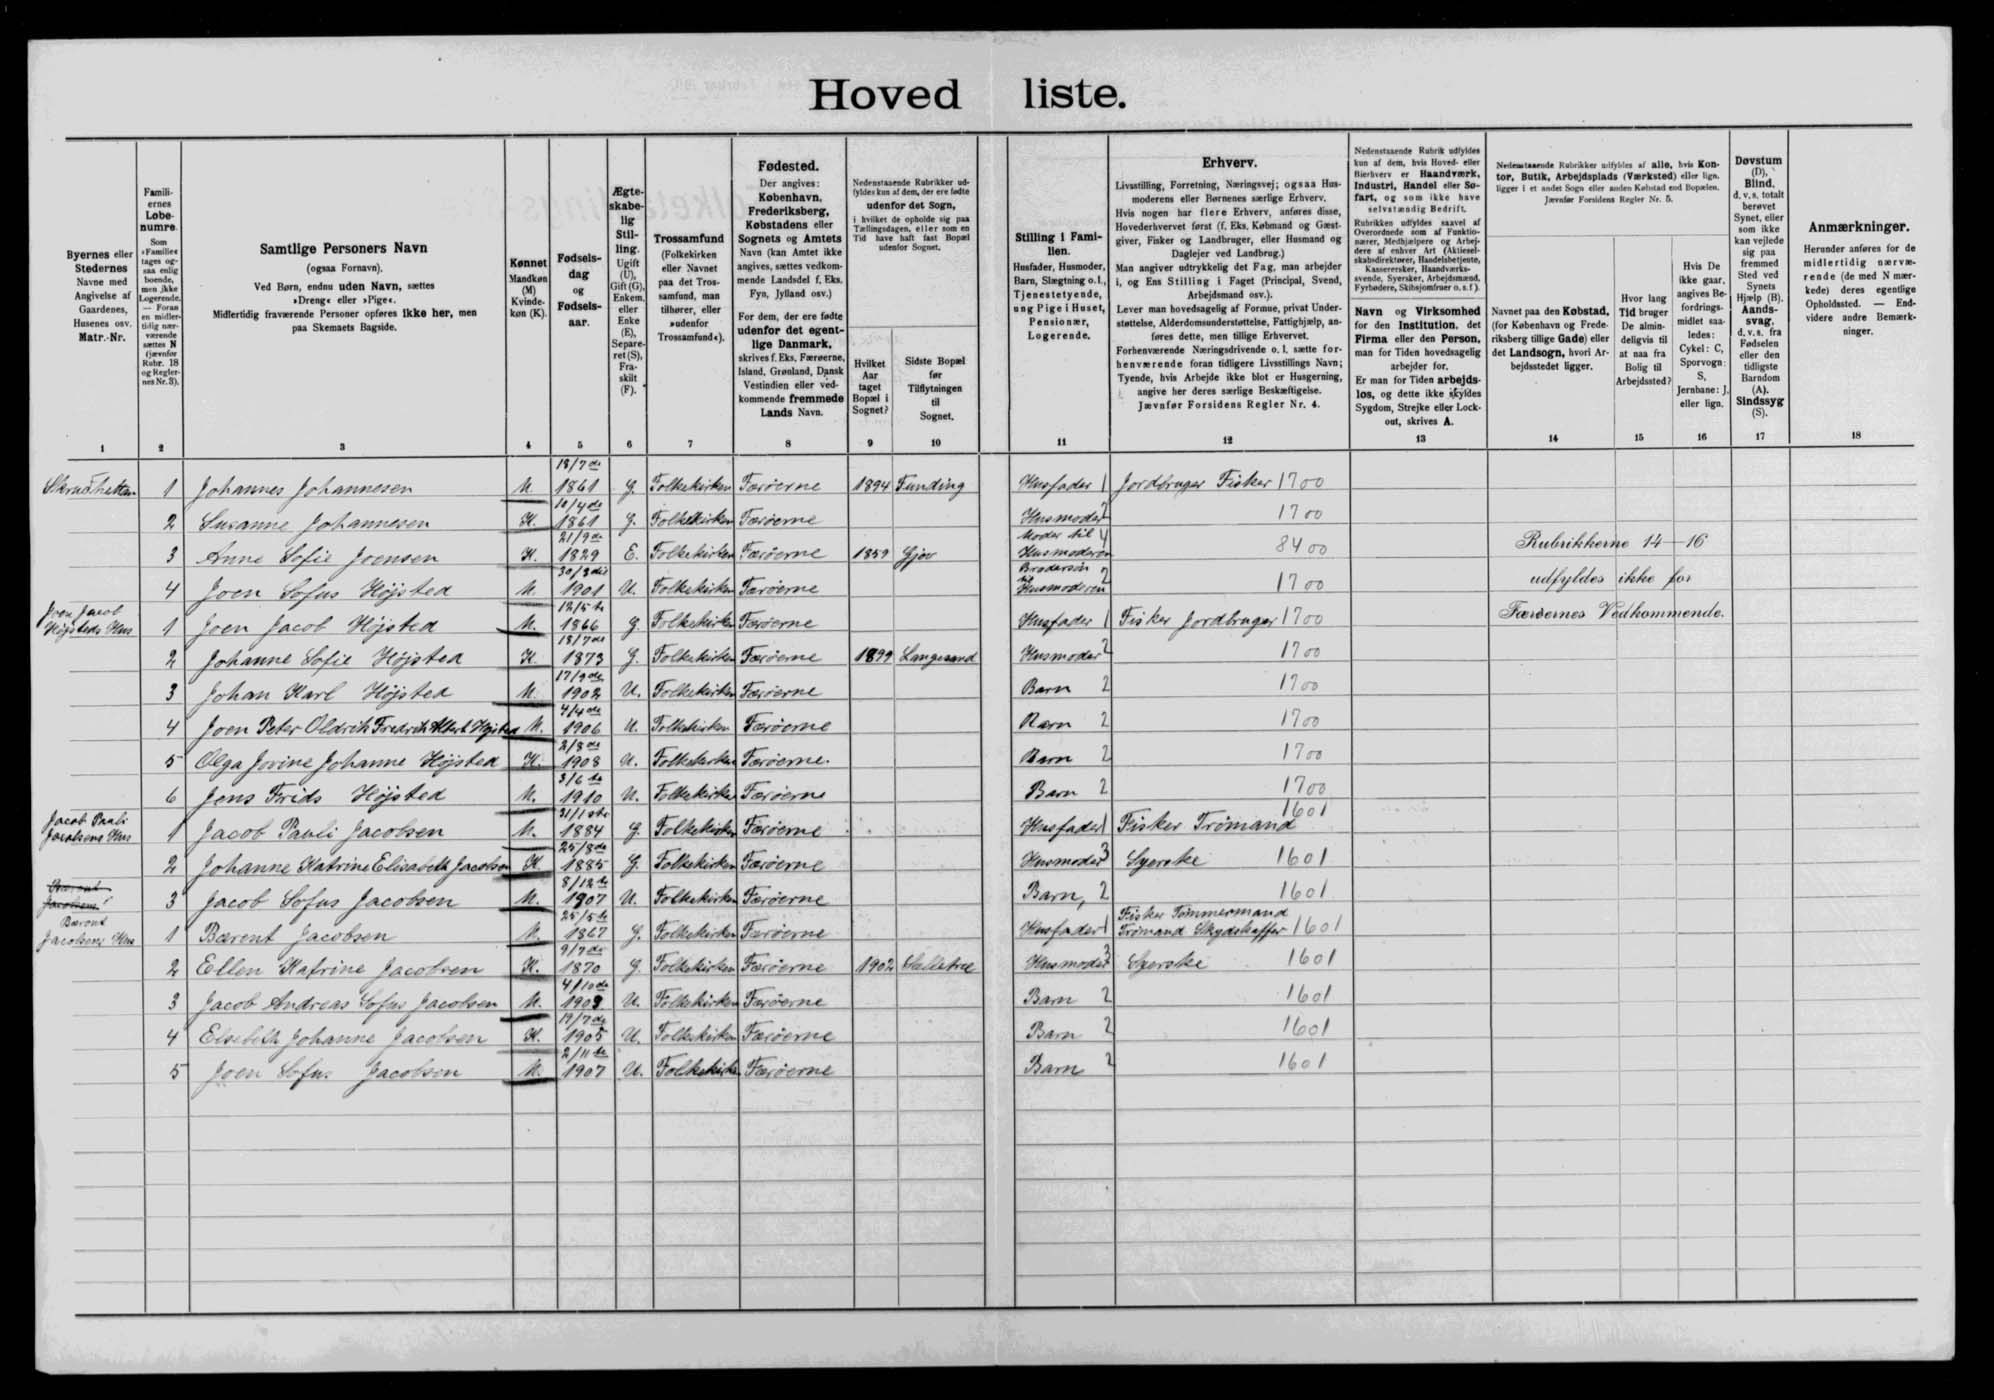 Hoved liste.
Byernes eller Stedernes Navne med Angivelse af Gaardenes, Husenes osv. Matr.-Nr.
Famili-ernes Løbe-numre.
Som »Familie« tages og-saa enlig boende, men ikke Logerende. — Foran en midler-tidig nær-værende sættes N (jævnfør Rubr. 18 og Regler-nes Nr. 3).
Samtlige Personers Navn
(ogsaa Fornavn).
Ved Børn, endnu uden Navn, sættes
»Dreng« eller »Pige«.
Midlertidig fraværende Personer opføres ikke her, men
paa Skemaets Bagside.
Kønnet
Mandkøn (M) Kvinde-køn (K).
Fødsels-dag og Fødsels-aar.
Ægte-skabe-lig Stil-ling.
Ugift (U), Gift (G), Enkem. eller Enke (E), Separe-ret (S), Fra-skilt (F).
Trossamfund
(Folkekirken eller Navnet paa det Tros-samfund, man tilhører, eller »udenfor Trossamfund«).
Fødested.
Der angives: København, Frederiksberg, Købstadens eller Sognets og Amtets Navn (kan Amtet ikke angives, sættes vedkom-mende Landsdel f. Eks. Fyn, Jylland osv.)
For dem, der ere fødte udenfor det egent-lige Danmark, skrives f. Eks. Færøerne, Island, Grønland, Dansk Vestindien eller ved-kommende fremmede Lands Navn.
Nedenstaaende Rubrikker ud-fyldes kun af dem, der ere fødte udenfor det Sogn, i hvilket de opholde sig paa Tællingsdagen, eller som en Tid have haft fast Bopæl udenfor Sognet.
Hvilket Aar taget Bopæl i Sognet?
Sidste Bopæl før Tilflytningen til Sognet.
Stilling i Fami-lien.
Husfader, Husmoder, Barn, Slægtning o. l., Tjenestetyende, ung Pige i Huset, Pensionær, Logerende.
Erhverv.
Livsstilling, Forretning, Næringsvej; ogsaa Hus-moderens eller Børnenes særlige Erhverv.
Hvis nogen har flere Erhverv, anføres disse, Hovederhvervet først (f. Eks. Købmand og Gæst-giver, Fisker og Landbruger, eller Husmand og Daglejer ved Landbrug.)
Man angiver udtrykkelig det Fag, man arbejder i, og Ens Stilling i Faget (Principal, Svend, Arbejdsmand osv.).
Lever man hovedsagelig af Formue, privat Under-støttelse, Alderdomsunderstøttelse, Fattighjælp, an-føres dette, men tillige Erhvervet.
Forhenværende Næringsdrivende o. l. sætte for-henværende foran tidligere Livsstillings Navn; Tyende, hvis Arbejde ikke blot er Husgerning, angive her deres særlige Beskæftigelse.
Jævnfør Forsidens Regler Nr. 4.
Nedenstaaende Rubrik udfyldes kun af dem, hvis Hoved- eller Bierhverv er Haandværk, Industri, Handel eller Sø-fart, og som ikke have selvstændig Bedrift.
Rubrikkes udfyldes saavel af Overordnede som af Funktio-nærer, Medhjælpere og Arbej-dere af enhver Art (Aktiesel-skabsdirektører, Handelsbetjente, Kasserersker, Haandværks-svende, Syersker, Arbejdsmænd, Fyrbødere, Skibsjomfruer o. s. f.).
Navn og Virksomhed for den Institution, det Firma eller den Person, man for Tiden hovedsagelig arbejder for.
Er man for Tiden arbejds-løs, og dette ikke skyldes Sygdom, Strejke eller Lock-out, skrives A.
Nedenstaaende Rubrikker udfyldes af alle, hvis Kon-tor, Butik, Arbejdsplads (Værksted) eller lign. ligger i et andet Sogn eller anden Købstad end Bopælen. Jævnfør Forsidens Regler Nr. 5.
Navnet paa den Købstad, (for København og Frede-riksberg tillige Gade) eller det Landsogn, hvori Ar-bejdsstedet ligger.
Hvor lang Tid bruger De almin-deligvis til at naa fra Bolig til Arbejdssted?
Hvis De ikke gaar, angives Be-fordrings-midlet saa-ledes: Cykel: C, Sporvogn: S, Jernbane: J. eller lign.
Døvstum (D), Blind, d. v. s. totalt berøvet Synet, eller som ikke kan vejlede sig paa fremmed Sted ved Synets Hjælp (B). Aands-svag, d. v. s. fra Fødselen eller den tidligste Barndom (A). Sindssyg (S).
Anmærkninger.
Herunder anføres for de midlertidig nærvæ-rende (de med N mær-kede) deres egentlige Opholdssted. — End-videre andre Bemærk-ninger.
1 2 3 4 5 6 7 8 9 10 11 12 13 14 15 16 17 18
1 Johannes Johannesen M. 18/7de 1861 G. Folkekirken Færøerne 1894 Funding Husfader 1 Jordbruger Fisker 1700
2 Susanne Johannesen K. 10/4de 1861 G. Folkekirken Færøerne Husmoder 2 1700
3 Anne Sofie Joensen K. 21/9de 1829 E. Folkekirken Færøerne 1859 Gjov Moder til Husmoderen 4 8400 Rubrikkerne 14—16
4 Joen Sofus Højsted M. 30/3 1901 U. Folkekirken Færøerne Brodersøn til Husmoderen 2 1700 udfyldes ikke for
Joen Jacob Højsteds Hus 1 Joen Jacob Højsted M. 12/5te 1866 G. Folkekirken Færøerne Husfader 1 Fisker Jordbruger 1700 Færøernes Vedkommende.
2 Johanne Sofie Højsted K. 18/7de 1873 G. Folkekirken Færøerne 1899 Langesand Husmoder 2 1700
3 Johan Karl Højsted M. 17/9de 1902 U. Folkekirken Færøerne Barn 2 1700
4 Joen Peter Oldrik Fredrik Albert Højsted M. 4/4de 1906 U. Folkekirken Færøerne Barn 2 1700
5 Olga Jovine Johanne Højsted K. 2/8de 1908 U. Folkekirken Færøerne. Barn 2 1700
6 Jens Frids Højsted M. 3/6te 1910 U. Folkekirken Færøerne Barn 2 1700
Jacob Pauli Jacobsens Hus 1 Jacob Pauli Jacobsen M. 31/1ste 1884 G. Folkekirken Færøerne Husfader 1 Fisker Trømand 1601
2 Johanne Katrine Elisabeth Jacobsen K. 25/8de 1885 G. Folkekirken Færøerne Husmoder 3 Syerske 1601
3 Jacob Sofus Jacobsen M. 8/12te 1907 U. Folkekirken Færøerne Barn, 2 1601
Bærent Jacobsens Hus 1 Bærent Jacobsen M. 25/5te 1867 G. Folkekirken Færøerne Husfader 1 Fisker Tømmermand Trømand Skydskaffer 1601
2 Ellen Katrine Jacobsen K. 9/7de 1870 G. Folkekirken Færøerne 1902 Husmoder 3 Syerske 1601
3 Jacob Andreas Sofus Jacobsen M. 4/10de U. Folkekirken Færøerne Barn 2 1601
4 Elsebeth Johanne Jacobsen K. 19/7de 1905 U. Folkekirken Færøerne Barn 2 1601
5 Joen Sofus Jacobsen M. 2/11te 1907 U. Folkekirken Færøerne Barn 2 1601